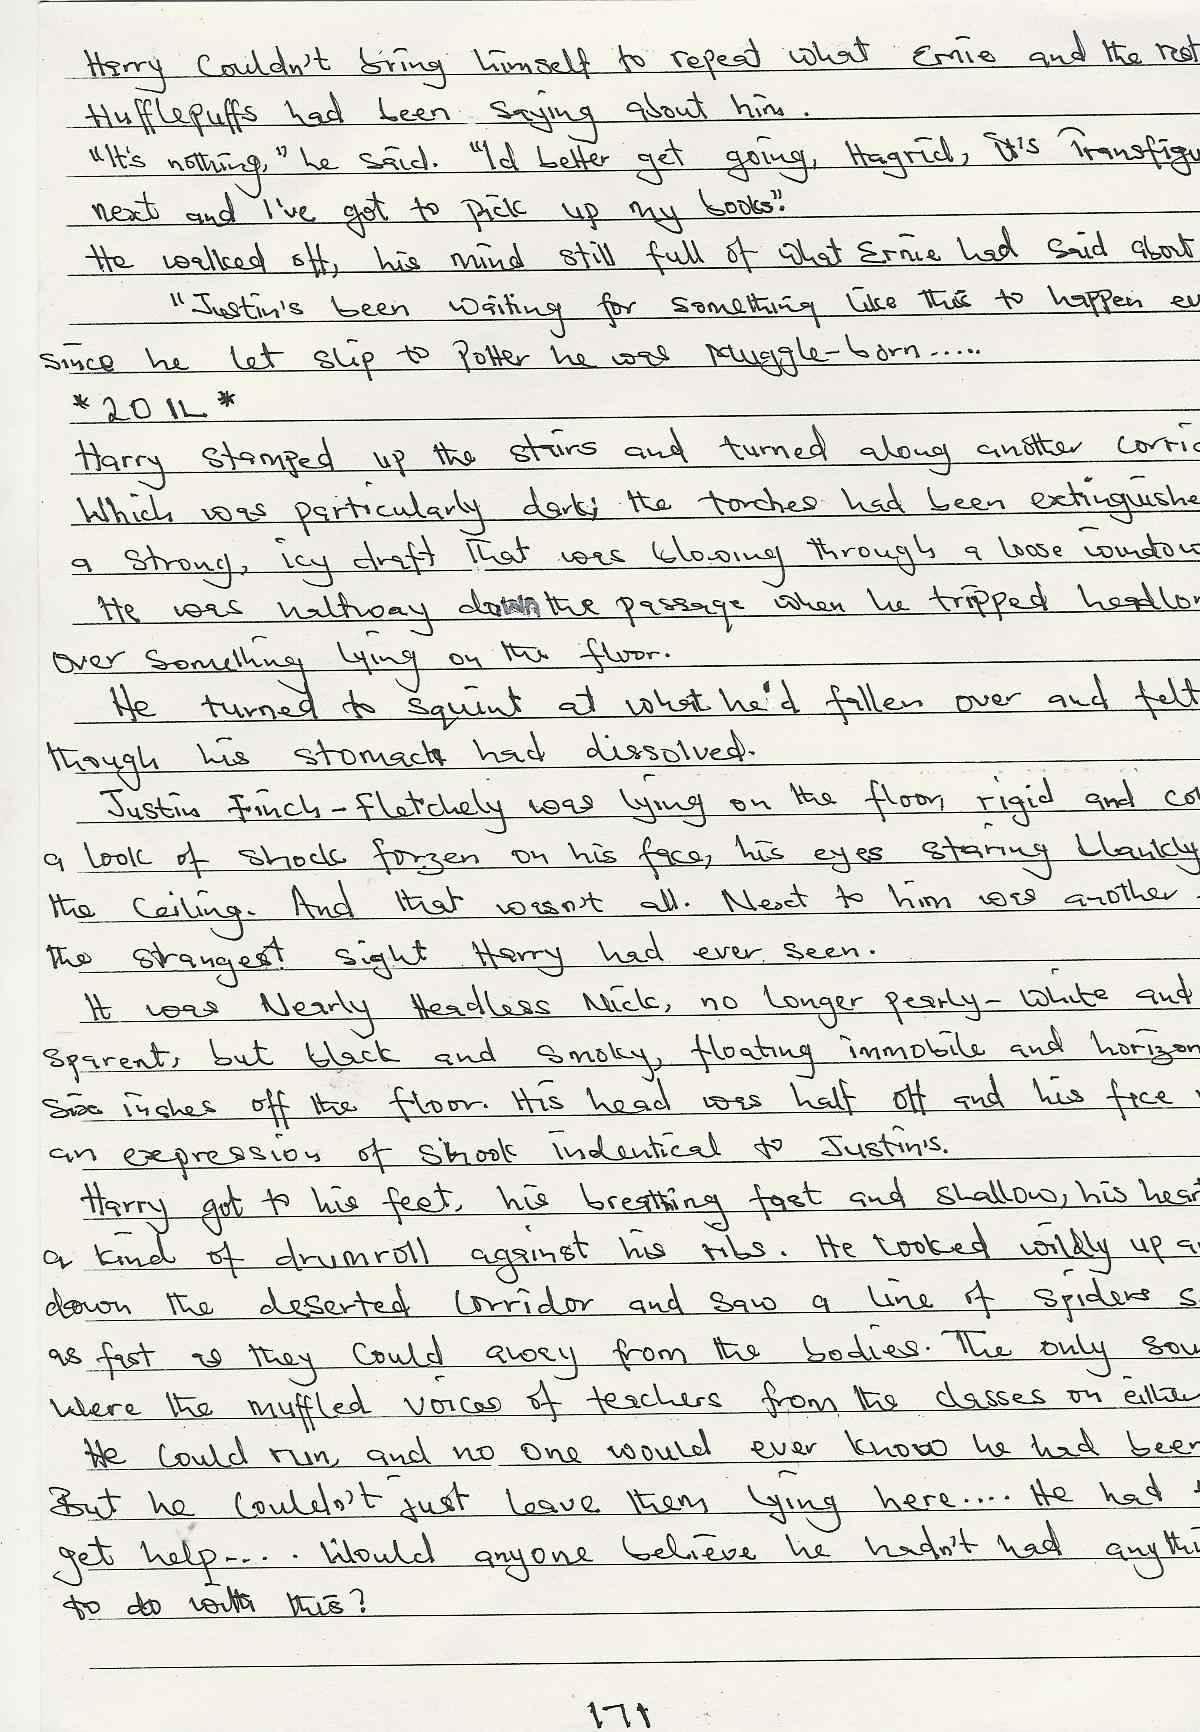 Harry Couldn't bring himself to repeat what Ernie and the rest
Hufflepuffs had been saying about him.
"It's nothing," he said. "Id better get going, Hagrid, it's Transfigu
next and I've got to pick up my books".
He walked off, his mind still full of what Ernie had said about
"Justin's been waiting for something like this to happen ev
since he let slip to Potter he was muggle-born.....
*20 1L*
Harry stamped up the stairs and turned along another corri
Which was particularly dark; the torches had been extinguishe
a strong, icy draft that was blowing through a loose window
He was halfway down the passage when he tripped headlon
over something lying on the floor.
He turned to squint at what he'd fallen over and felt
though his stomach had dissolved.
Justin Finch-Fletchely was lying on the floor, rigid and co
a look of shock forzen on his face, his eyes staring blankly
the Ceiling. And that wasn't all. Next to him was another
the strangest sight Harry had ever seen.
It was Nearly Headless Nick, no longer pearly-white and
sparent, but black and smoky, floating immobile and horizon
six inches off the floor. His head was half off and his face
an expression of shock indentical to Justin's.
Harry got to his feet, his breathing fast and shallow, his hear
a kind of drumroll against his ribs. He looked wildly up a
down the deserted corridor and saw a line of spiders s
as fast as they could away from the bodies. The only sou
were the muffled voices of teachers from the classes on either
He could run, and no one would ever know he had been
But he couldn't just leave them lying here.... He had
get help.... Would anyone believe he hadn't had anythi
to do with this?
171